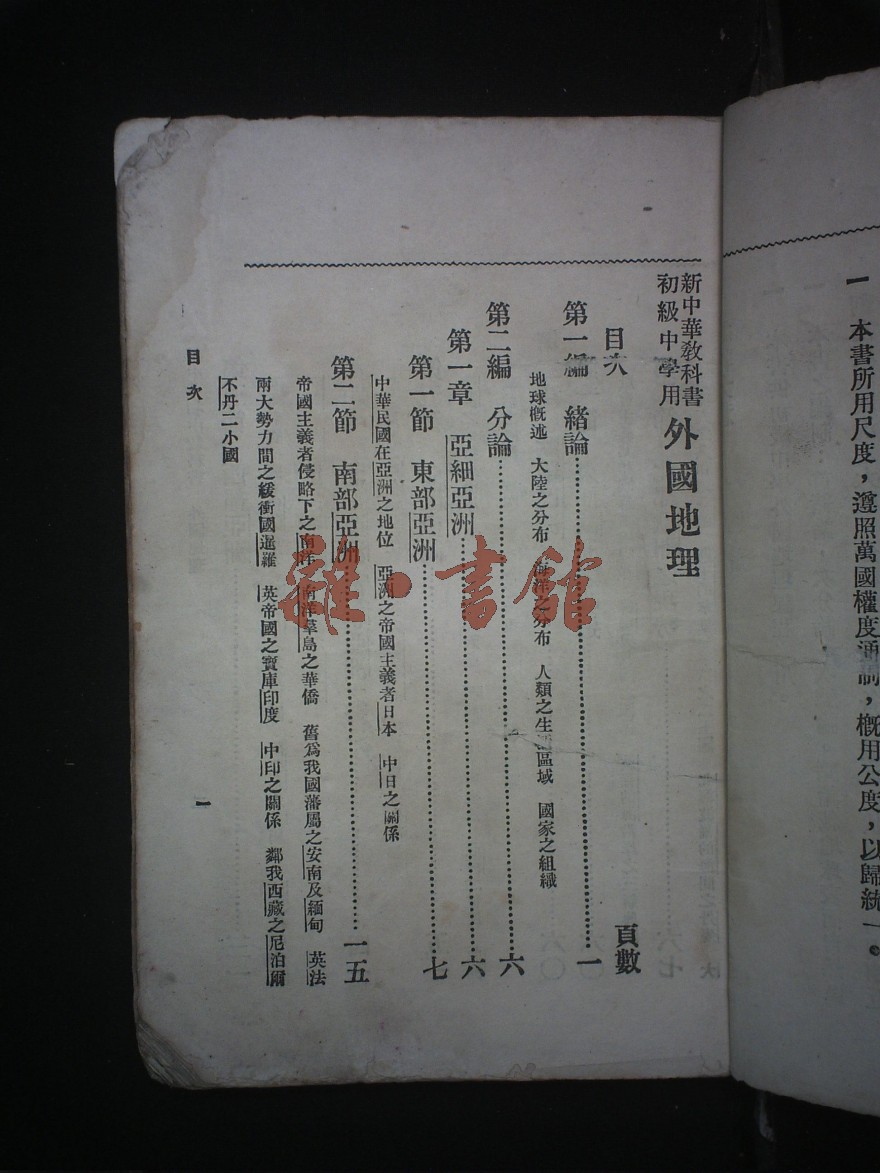 一 本書所用尺度，遵照萬國權度通制，概用公度，以歸統一。
新中華教科書
初級中學用
外國地理
目次 頁數
第一編 緒論 一
地球概述 大陸之分布 海洋之分布 人類之生活區域 國家之組織
第二編 分論 六
第一章 亞細亞洲 六
第一節 東部亞洲 七
中華民國在亞洲之地位 亞洲之帝國主義者日本 中日之關係
第二節 南部亞洲 一五
帝國主義者侵略下之南洋 南洋羣島之華僑 舊爲我國藩屬之安南及緬甸 英法
兩大勢力間之緩衝國暹羅 英帝國之寶庫印度 中印之關係 鄰我西藏之尼泊爾
不丹二小國
目次
一
雜·書館